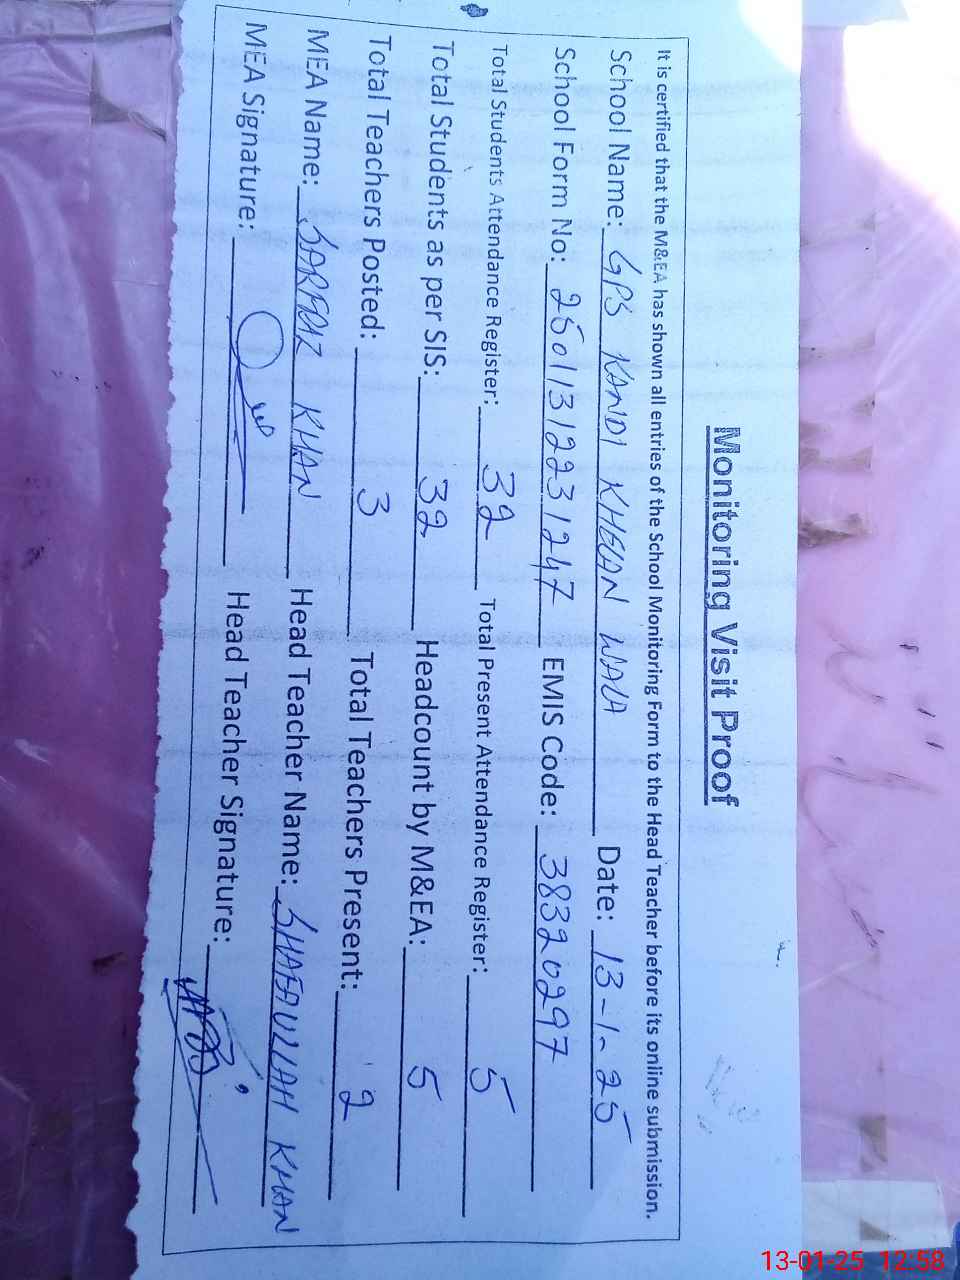 Monitoring Visit Proof
It is certified that the M&EA has shown all entries of the School Monitoring Form to the Head Teacher before its online submission.
School Name: GPS KANDI KHEAN WALA Date: 13-1-25
School Form No: 250113122231247 EMIS Code: 38320297
Total Students Attendance Register: 32 Total Present Attendance Register: 5
Total Students as per SIS: 32 Headcount by M&EA: 5
Total Teachers Posted: 3 Total Teachers Present: 2
MEA Name: SARFRAZ KHAN Head Teacher Name: SHAFAULLAH KHAN
MEA Signature: Head Teacher Signature:
13-01-25 12:58